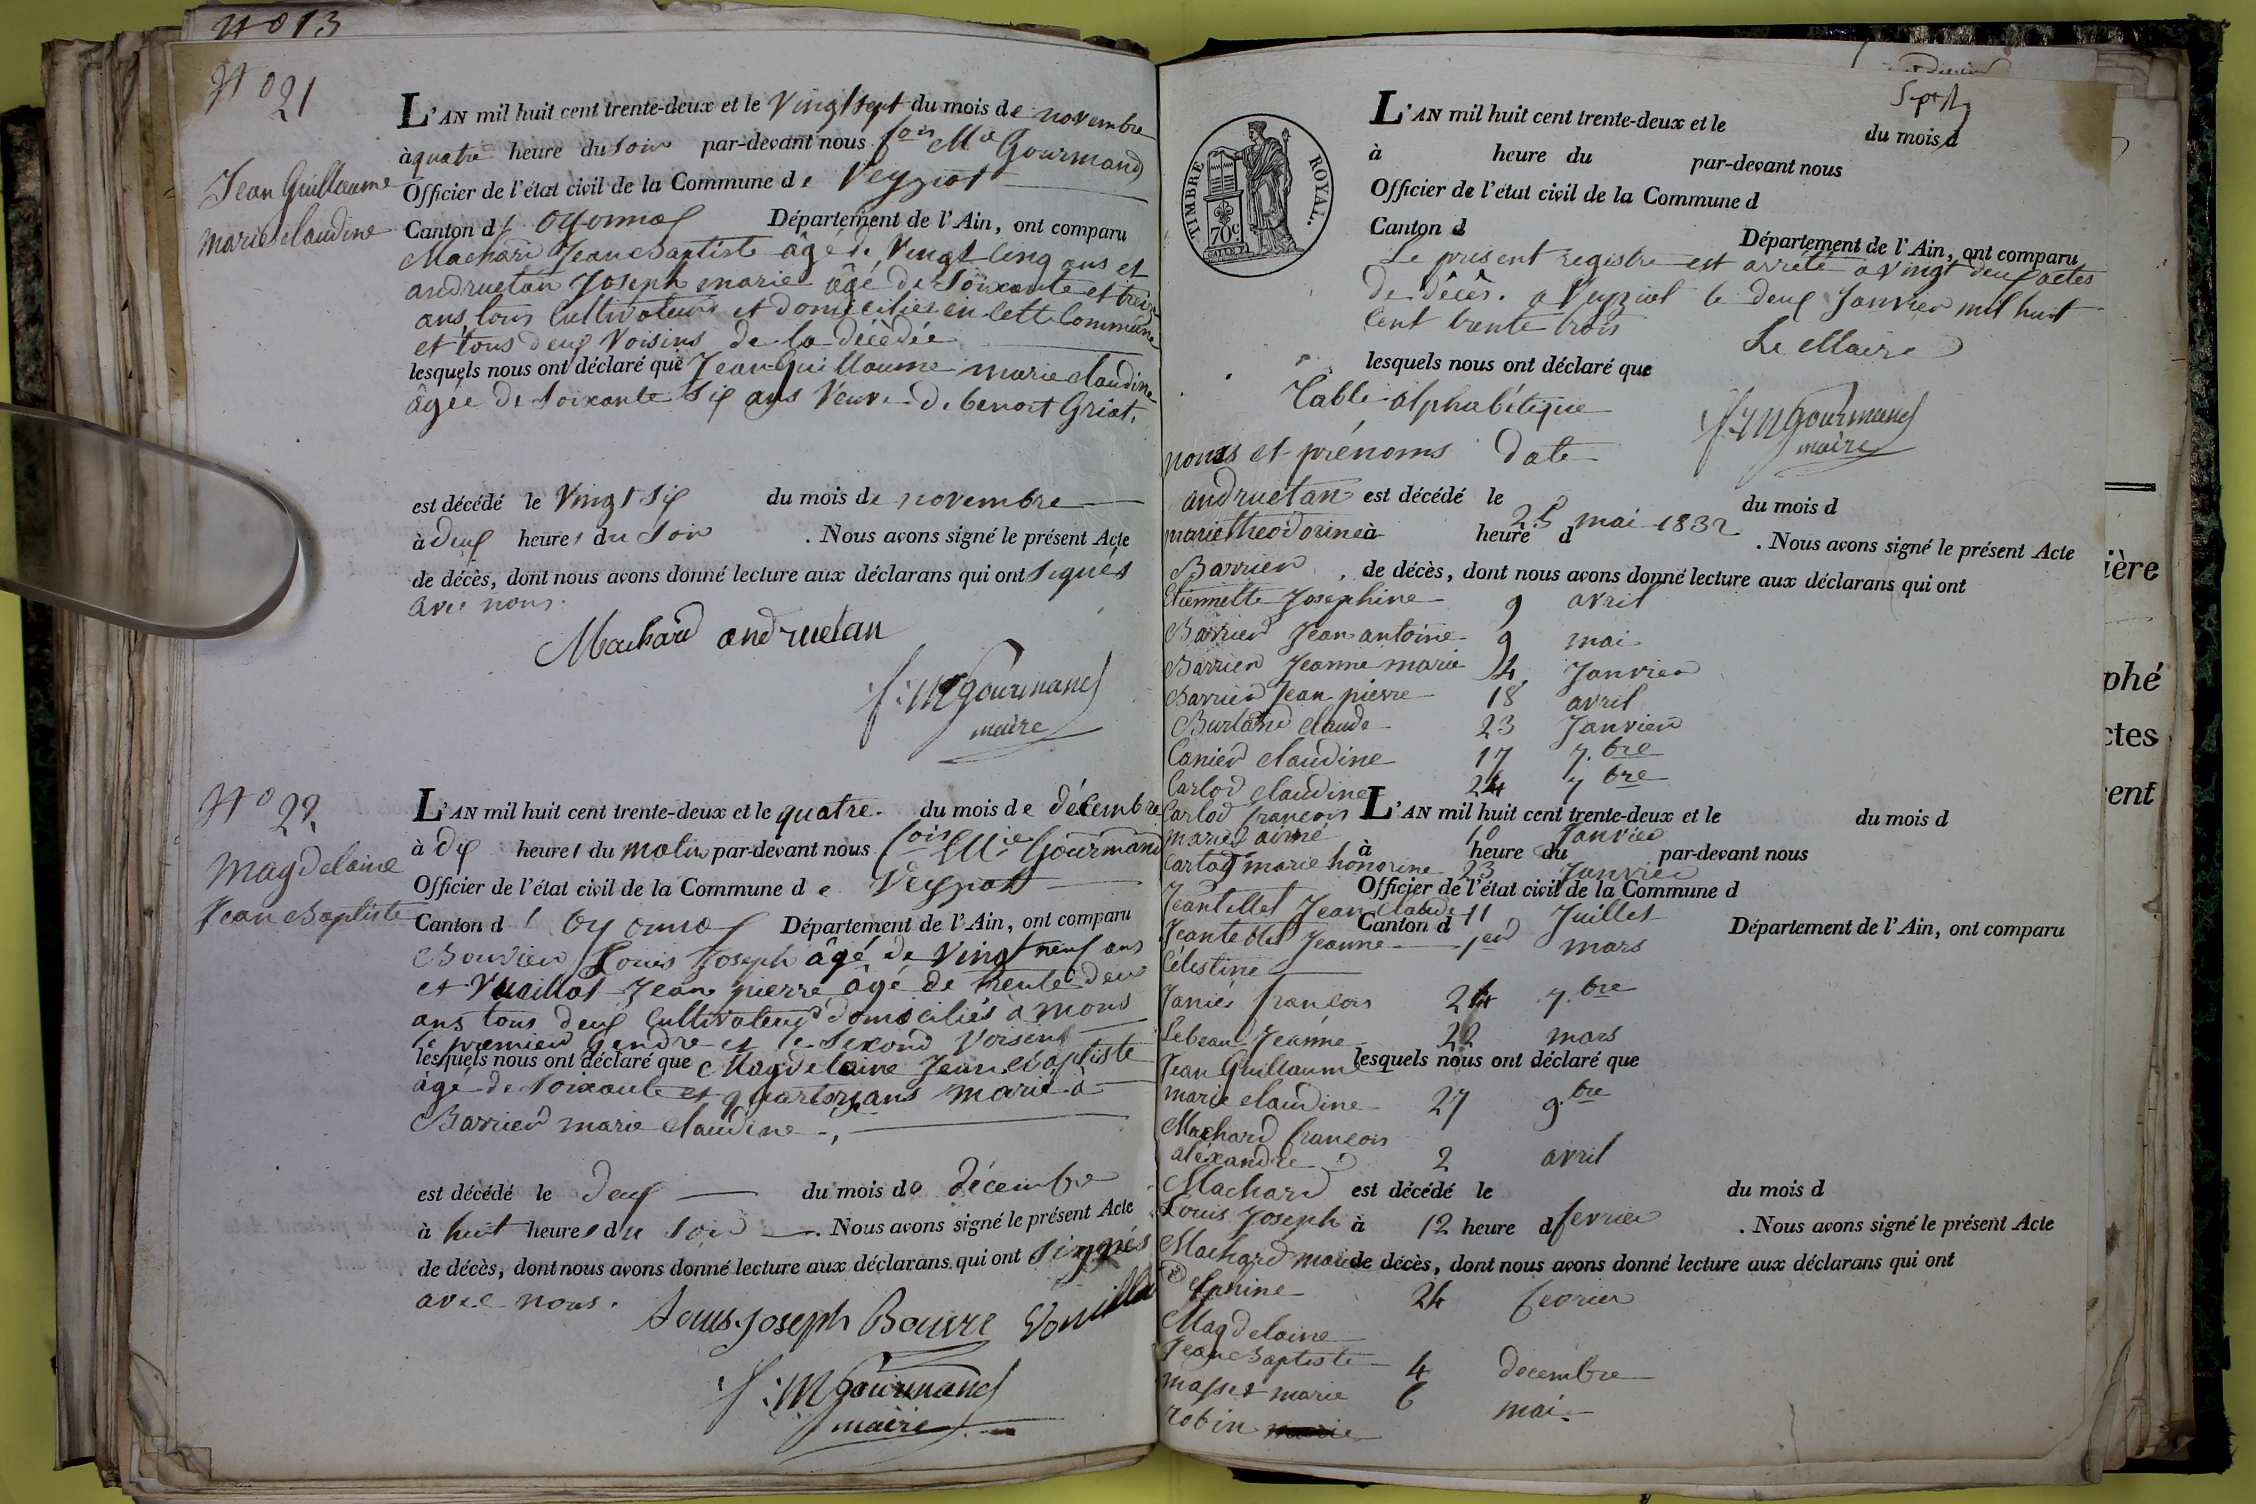 N° 13
N° 21
Jean Guillaume
marie claudine
L'AN mil huit cent trente-deux et le Vingt sept du mois de novembre
à quatre heure du soir par-devant nous fois Mie Gourmand
Officier de l'état civil de la Commune de Veyziat
Canton d'oyonnax Département de l'Ain, ont comparu
Machard Jean Baptiste âgé de Vingt cinq ans et
andruetan Joseph marie âgé de Soixante et treize
ans tous Cultivateurs et domiciliés en cette Commune
et tous deux Voisins de la décédée
lesquels nous ont déclaré que Jean Guillaume marie claudine
âgée de Soixante Six ans Veuve de benoit Griat.
est décédé le Vingt Six du mois de novembre
à deux heures du Soir . Nous avons signé le présent Acte
de décès, dont nous avons donné lecture aux déclarans qui ont signés
avec nous.
Machard andruetan
f: M Gourmand
maire
N° 22
Magdelaine
Jean Baptiste
L'AN mil huit cent trente-deux et le quatre du mois de décembre
à dix heures du matin par-devant nous fois Mie Gourmand
Officier de l'état civil de la Commune de Veyziat
Canton d'oyonnax Département de l'Ain, ont comparu
Bouvier Louis Joseph âgé de Vingt neuf ans
et Vuaillat Jean pierre âgé de trente deux
ans tous deux Cultivateurs domiciliés à mons
le premier Gendre et le Second Voisin
lesquels nous ont déclaré que Magdelaine Jean Baptiste
âgé de Soixante et quatorze ans marié à
Barrier marie claudine
est décédé le deux du mois de décembre
à huit heures du Soir . Nous avons signé le présent Acte
de décès, dont nous avons donné lecture aux déclarans qui ont signés
avec nous.
Louis Joseph Bouvre
f: M Gourmand
maire
Sept
TIMBRE ROYAL.
70c
L'AN mil huit cent trente-deux et le du mois d
à heure du par-devant nous
Officier de l'état civil de la Commune d
Canton d
Département de l'Ain, ont comparu
Le présent registre est arrêté à vingt deux actes
de décès. a Veyziat le deux Janvier mil huit
Cent trente trois
Le Maire
lesquels nous ont déclaré que
Table alphabétique
f: M Gourmand
maire
noms et prénoms date
andruetan est décédé le du mois d
25 mai 1832
marie theodorine à heure d . Nous avons signé le présent Acte
Barrier , de décès, dont nous avons donné lecture aux déclarans qui ont
Etiennette Josephine 9 avril
Barrier Jean antoine 9 mai
Barrier Jeanne marie 4 Janvier
Barrier Jean pierre 18 avril
Burland claude 23 Janvier
Canier claudine 17 7.bre
Carlod claudine 24 7bre
Carlod francois L'AN mil huit cent trente-deux et le du mois d
marie aimé 10 Janvier
à heure du par-devant nous
Carlod marie honorine 23 Janvier
Officier de l'état civil de la Commune d
Jeantellet Jean claude 11 Juillet
Canton d Département de l'Ain, ont comparu
Jeantellet Jeanne 1er mars
Célestine
Janier francois 24 7.bre
Lebeau Jeanne 22 mars
lesquels nous ont déclaré que
Jean Guillaume
marie claudine 27 9.bre
Machard francois
aléxandre 2 avril
Machard est décédé le du mois d
Louis Joseph à 12 heure d fevrier . Nous avons signé le présent Acte
Machard marie de décès, dont nous avons donné lecture aux déclarans qui ont
24 fevrier
Magdelaine
Jean Baptiste 4 decembre
masset marie 6 mai
robin
ière
phé
ctes
cent